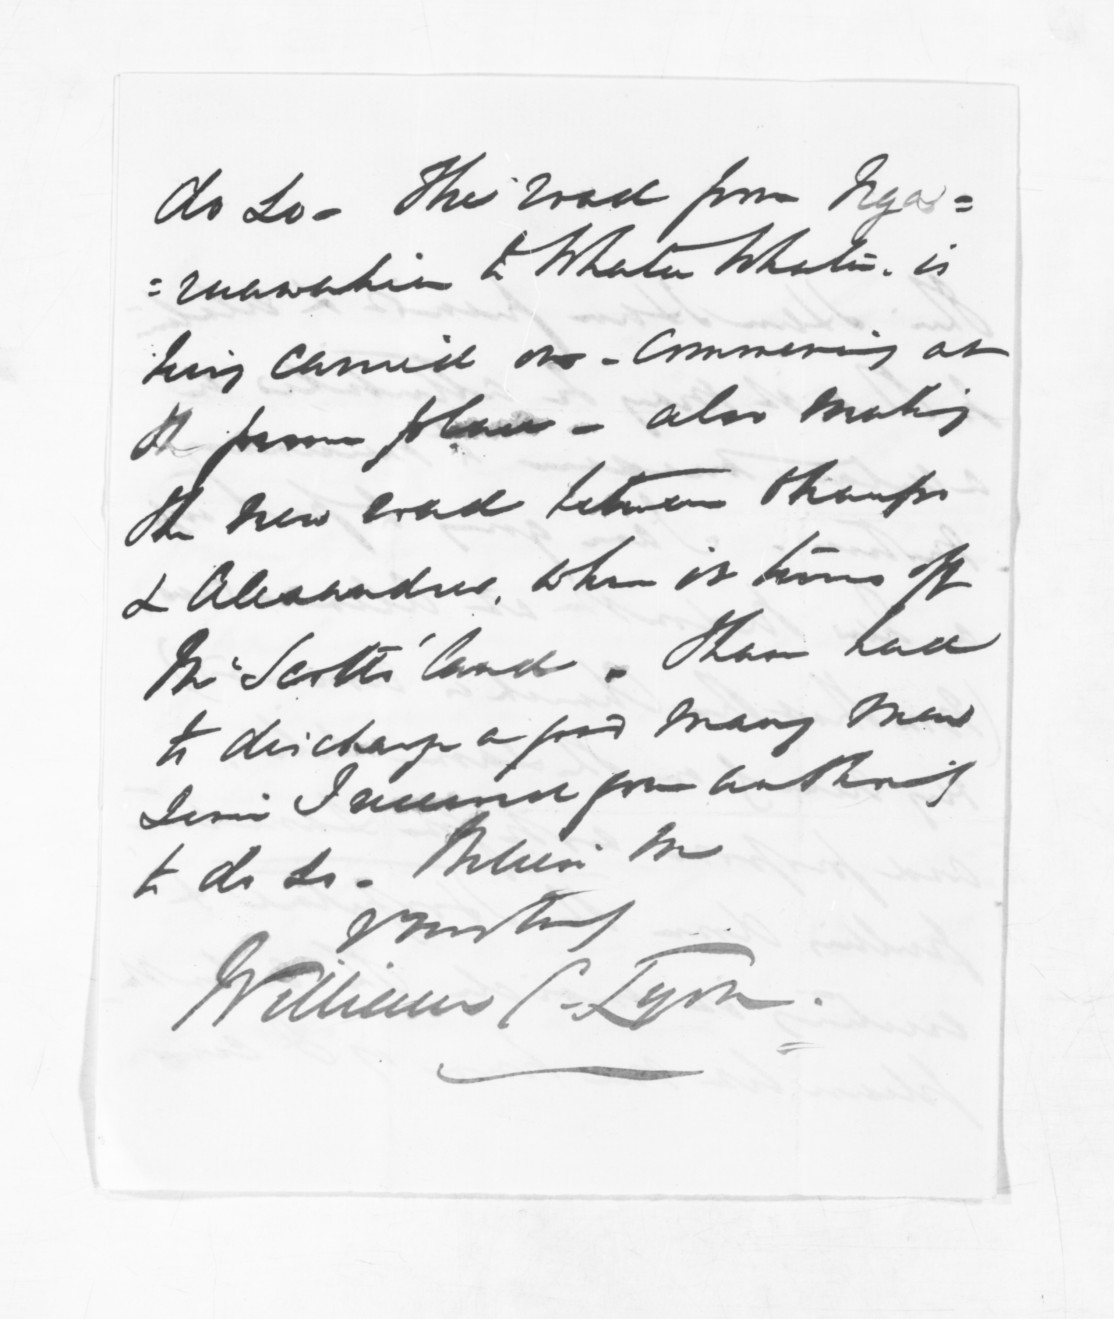 do so - The road from Nga=
=ruawahia to Whata Whata. is
being carried on - Commencing at
the former place - also making
the new road between
& Alexandra, when it turns off
Mr Scotts' land - I have had
to discharge a good many men
since I received your authority
to do so - Believe me
yours truly
William C. Lyon.